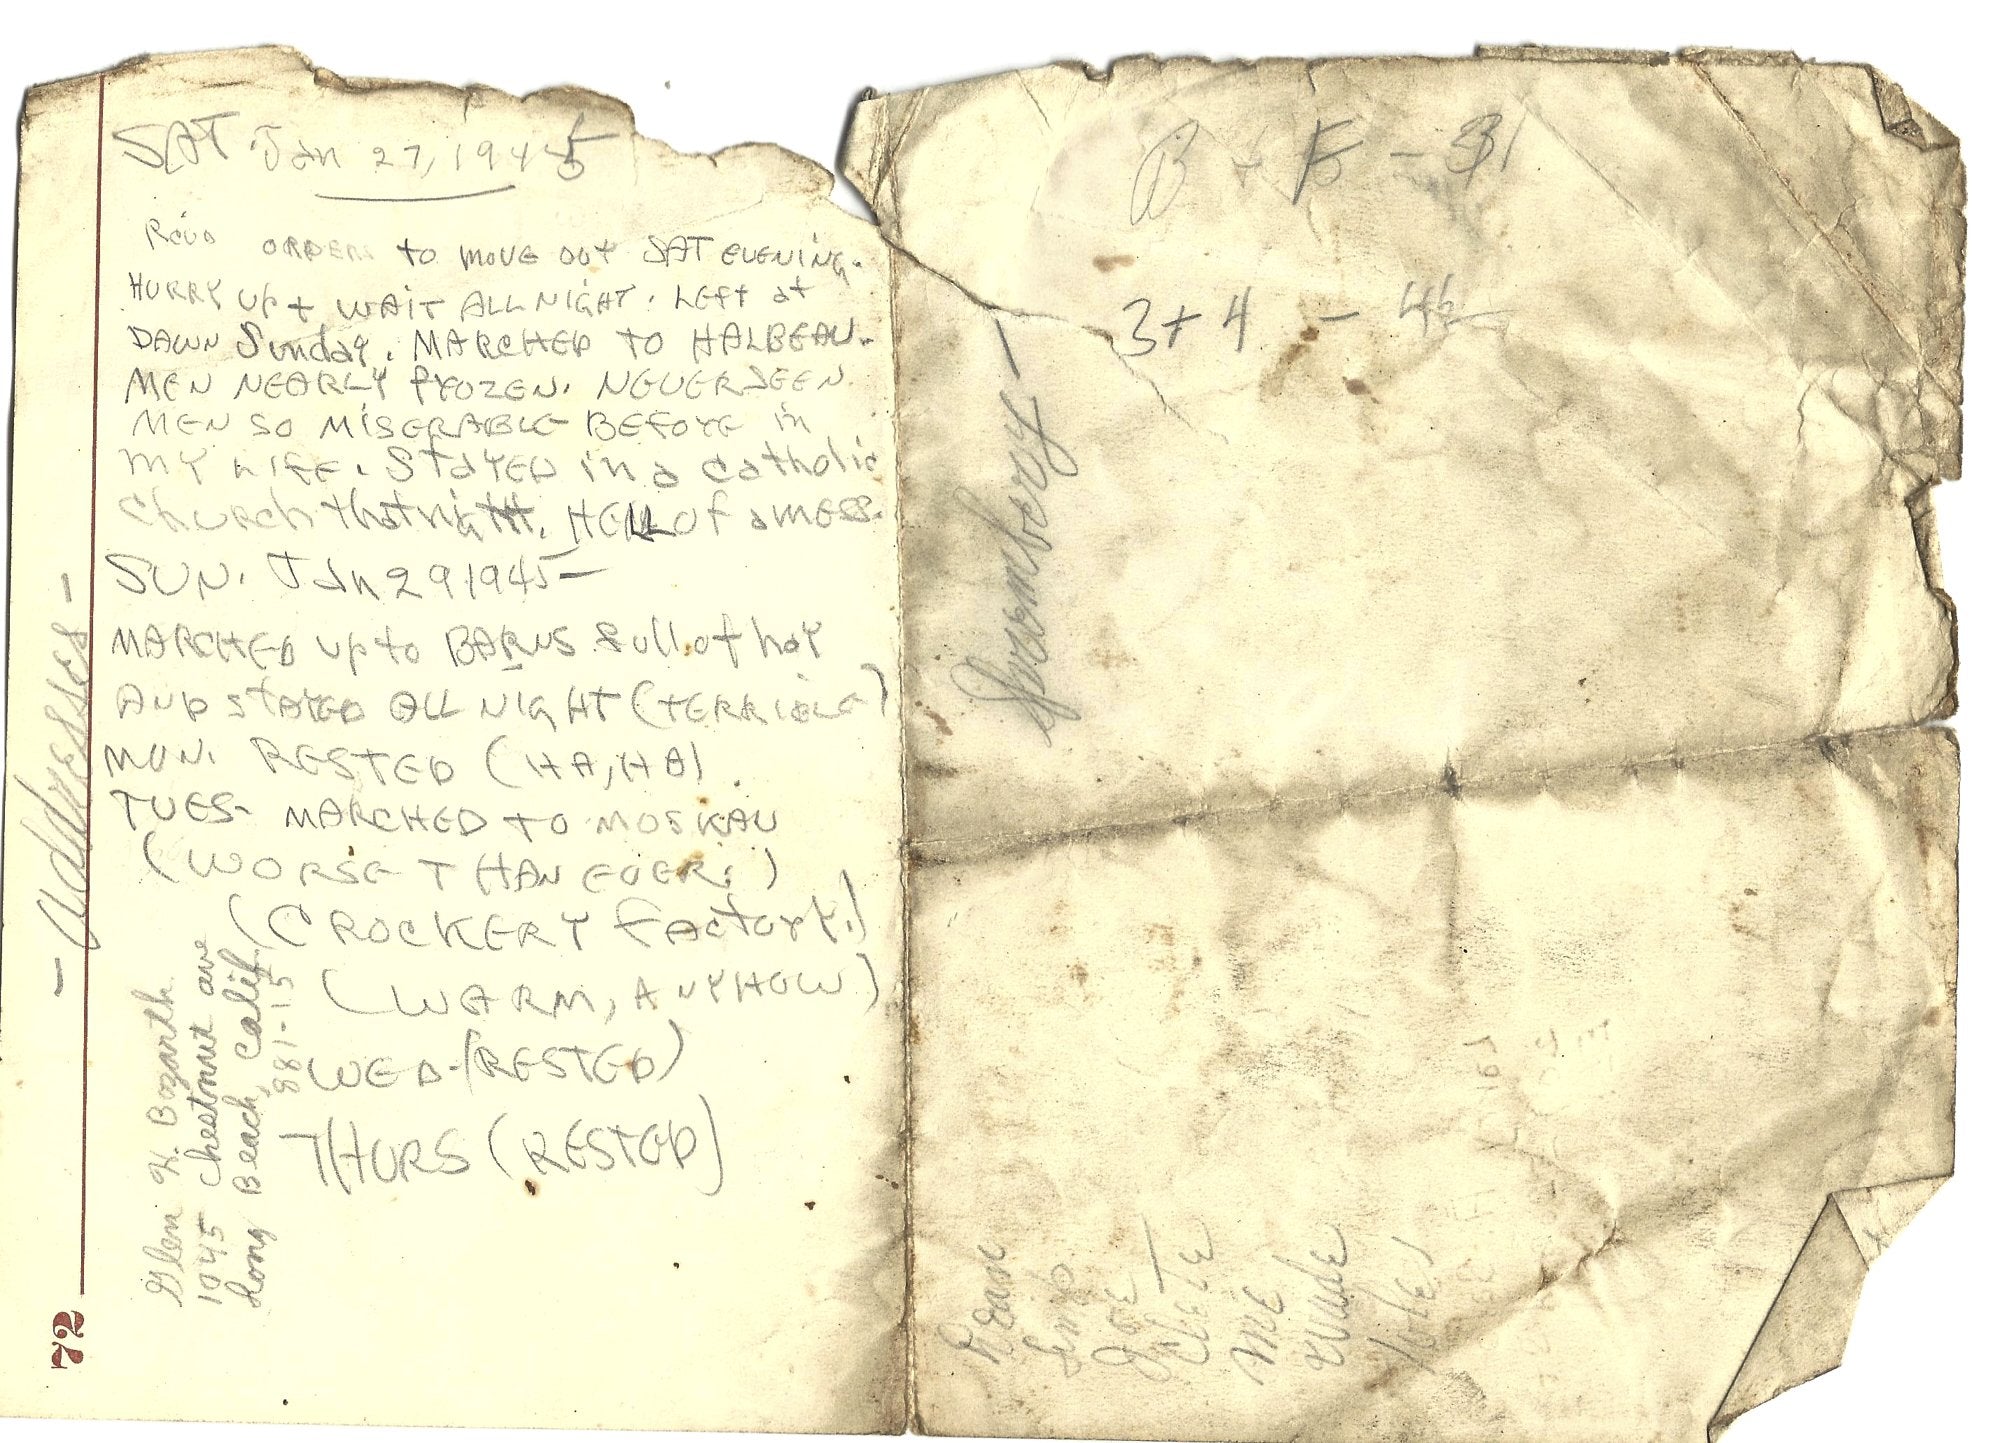 SAT Jan 27, 1945
Rcvd ORDERS to MOVE OUT SAT EVENING.
HURRY UP + WAIT ALL NIGHT. LEFT at
DAWN Sunday. MARCHED TO HALBEAU.
MEN NEARLY FROZEN. NEVER SEEN
MEN SO MISERABLE BEFORE in
MY LIFE. STAYED in a catholic
church that night. HELL of a mess.
SUN. Jan 29 1945-
MARCHED up to BARNS full of hay
AND STAYED ALL NIGHT (TERRIBLE)
MON. RESTED (HA, HA)
TUES- MARCHED TO MOSKAU
(WORSE THAN EVER.)
(CROCKERY FACTORY.)
(WARM, ANYHOW)
WED-(RESTED)
THURS (RESTED)
- addresses -
Glen H. Bozarth
1045 Chestnut ave
Long Beach, Calif
881-15
72
B + F - 31
3 + 4 - 46
Dean
Joe
Clete
Me